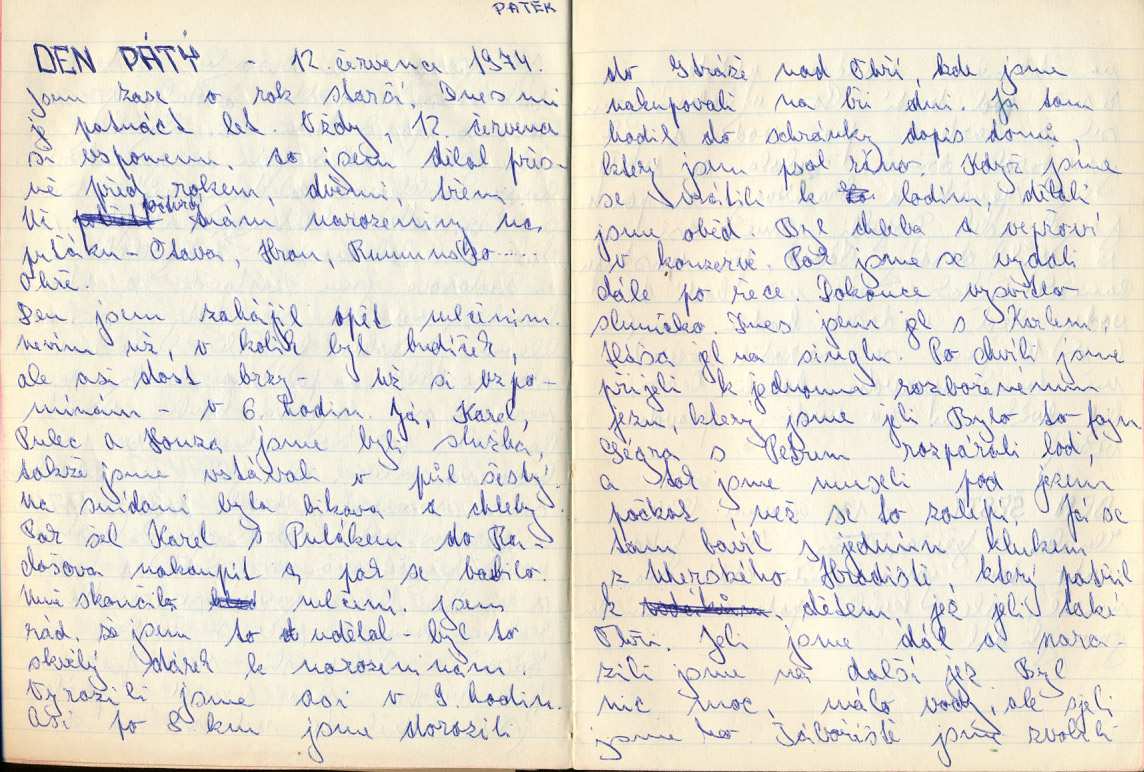 PÁTEK
DEN PÁTÝ - 12. července 1974.
Jsem zase o rok starší. Dnes mi
je patnáct let. Vždy, 12. července
si vspomenu, co jsem dělal přes-
ně před rokem, dvěmi, třemi
Už počtvrté mám narozeniny na
puťáku - Otava, Hron, Rumunsko
Ohře.
Den jsem zahájil opět mlčením.
nevím už, v kolik byl budíček,
ale asi dost brzy - už si vzpo-
mínám - v 6 hodin. Já, Karel,
Pulec a Honza, jsme byli služba,
takže jsme vstávali v půl šestý.
Na snídani byla bikava a chleby.
Pak šel Karel s Pulákem do Ra-
došova nakoupit a pak se balilo.
Mně skončilo mlčení. Jsem
rád, že jsem to udělal - byl to
skvělý dárek k narozeninám.
Vyrazili jsme asi v 9 hodin.
Asi po 8 km jsme dorazili
do Stráže nad Ohří, kde jsme
nakupovali na tři dni. Já tam
hodil do schránky dopis domů
který jsem psal ráno. Když jsme
se vrátili k lodím, dělali
jsme oběd. Byl chleba a vepřový
v konzervě. Pak jsme se vydali
dále po řece. Dokonce vysvitlo
sluníčko. Dnes jsem jel s Karlem.
jel na singlu. Po chvíli jsme
přijeli k jednomu rozbořenému
jezu, který jsme jeli Bylo to fajn
Ségra s Petrem rozpárali loď,
a tak jsme museli pod jezem
počkat, než se to zalepí. Já se
tam bavil s jedním klukem
z Uherského Hradiště který patřil
k dětem, jež jeli také
Ohři. Jeli jsme dál a nara-
zili jsme na další jez Byl
nic moc, málo vody, ale sjeli
jsme ho. Tábořiště jsme zvolili